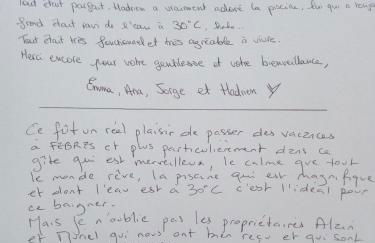 tout était parfait. Hadrien a vraiment adoré la piscine, lui qui a toujours
grand était ravi de l'eau à 30°C,
Tout était très fonctionnel et très agréable à vivre.
Merci encore pour votre gentillesse et votre bienveillance,
Emma, Ana, Jorge et Hadrien
Ce fût un réal plaisir de passer des vacances
à FEBRES et plus particulièrement dans ce
gîte qui est merveilleux, le calme que tout
le monde rêve, la piscine qui est magnifique
et dont l'eau est à 30°C c'est l'idéal pour
ce baigner.
Mais je n'oublie pas les propriétaires Alain
et Muriel qui nous ont bien reçu et qui sont